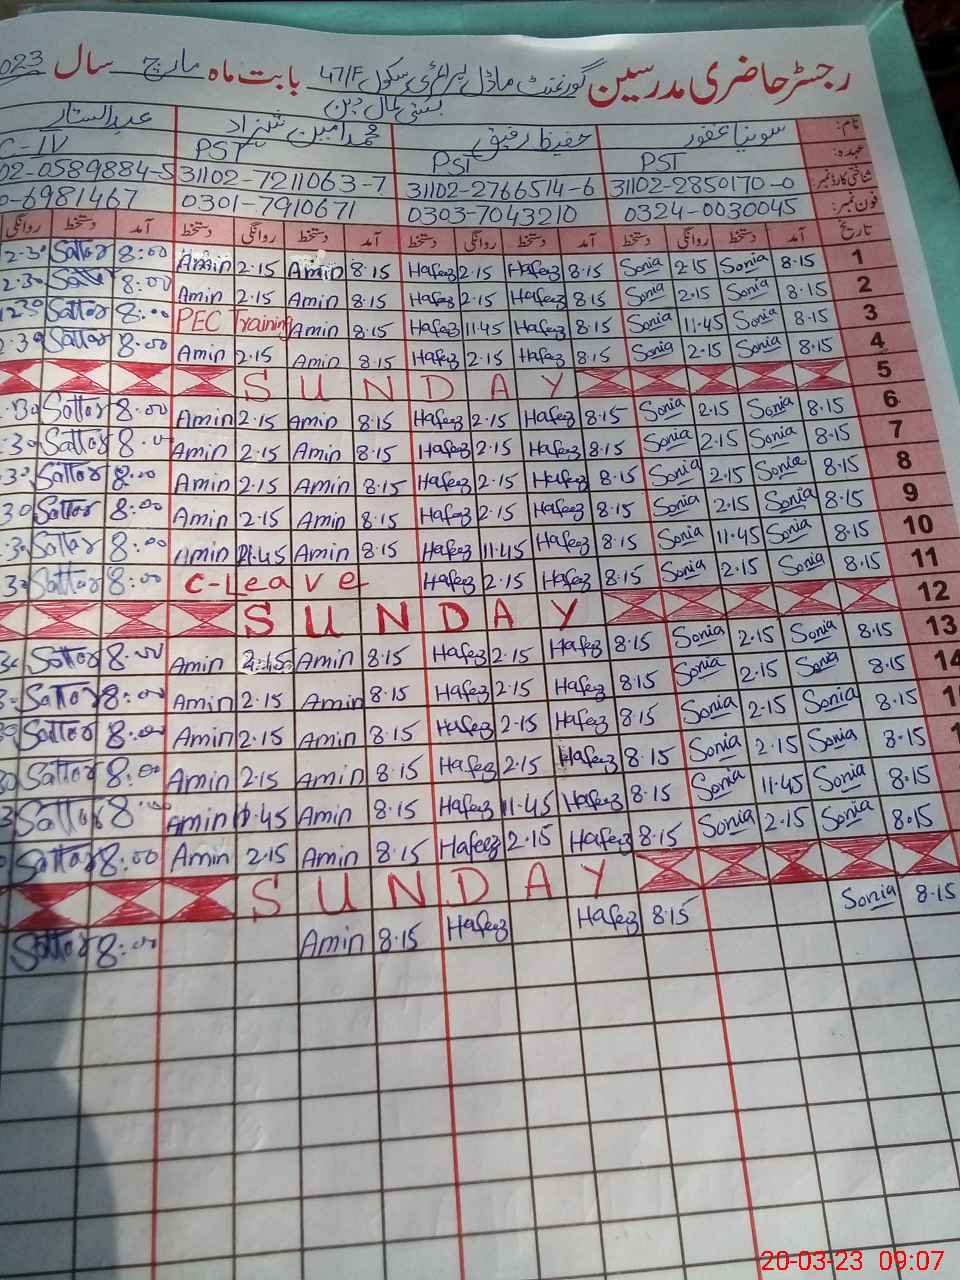 رجسٹر حاضری مدرسین گورنمنٹ ماڈل پرائمری سکول 47/F بابت ماہ مارچ سال 2023
بستی کمال دین
نام: سونیا غفور حفیظ رفیق محمد امین شہزاد عبدالستار
عہدہ: PST PST PST C-IV
شناختی کارڈ نمبر: 31102-2850170-0 31102-2766514-6 31102-7211063-7 02-0589884-5
فون نمبر: 0324-0030045 0303-7043210 0301-7910671 0-6981467
تاریخ آمد دستخط روانگی دستخط آمد دستخط روانگی دستخط آمد دستخط روانگی دستخط آمد دستخط روانگی
1 8.15 Sonia 2.15 Sonia 8.15 Hafeez 2.15 Hafeez 8.15 Amin 2.15 Amin 8:00 Sattar 2.30
2 8.15 Sonia 2.15 Sonia 8.15 Hafeez 2.15 Hafeez 8.15 Amin 2.15 Amin 8:00 Sattar 2.30
3 8.15 Sonia 11.45 Sonia 8.15 Hafeez 11.45 Hafeez 8.15 Amin PEC Training 8:00 Sattar 12.30
4 8.15 Sonia 2.15 Sonia 8.15 Hafeez 2.15 Hafeez 8.15 Amin 2.15 Amin 8:00 Sattar 2.30
5 SUNDAY
6 8.15 Sonia 2.15 Sonia 8.15 Hafeez 2.15 Hafeez 8.15 Amin 2.15 Amin 8:00 Sattar .30
7 8.15 Sonia 2.15 Sonia 8.15 Hafeez 2.15 Hafeez 8.15 Amin 2.15 Amin 8:00 Sattar .30
8 8.15 Sonia 2.15 Sonia 8.15 Hafeez 2.15 Hafeez 8.15 Amin 2.15 Amin 8:00 Sattar .30
9 8.15 Sonia 2.15 Sonia 8.15 Hafeez 2.15 Hafeez 8.15 Amin 2.15 Amin 8:00 Sattar 30
10 8.15 Sonia 11.45 Sonia 8.15 Hafeez 11.45 Hafeez 8.15 Amin 11.45 Amin 8:00 Sattar .30
11 8.15 Sonia 2.15 Sonia 8.15 Hafeez 2.15 Hafeez C-Leave 8:00 Sattar 30
12 SUNDAY
13 8.15 Sonia 2.15 Sonia 8.15 Hafeez 2.15 Hafeez 8.15 Amin 2:15 Amin 8:00 Sattar
14 8.15 Sonia 2.15 Sonia 8.15 Hafeez 2.15 Hafeez 8.15 Amin 2.15 Amin 8:00 Sattar
1 8.15 Sonia 2.15 Sonia 8.15 Hafeez 2.15 Hafeez 8.15 Amin 2.15 Amin 8:00 Sattar
1 8.15 Sonia 2.15 Sonia 8.15 Hafeez 2.15 Hafeez 8.15 Amin 2.15 Amin 8:00 Sattar
8.15 Sonia 11.45 Sonia 8.15 Hafeez 11.45 Hafeez 8.15 Amin 11.45 Amin 8:00 Sattar
8.15 Sonia 2.15 Sonia 8.15 Hafeez 2.15 Hafeez 8.15 Amin 2.15 Amin 8:00 Sattar
SUNDAY
8.15 Sonia 8.15 Hafeez Hafeez 8.15 Amin 8:00 Sattar
20-03-23 09:07